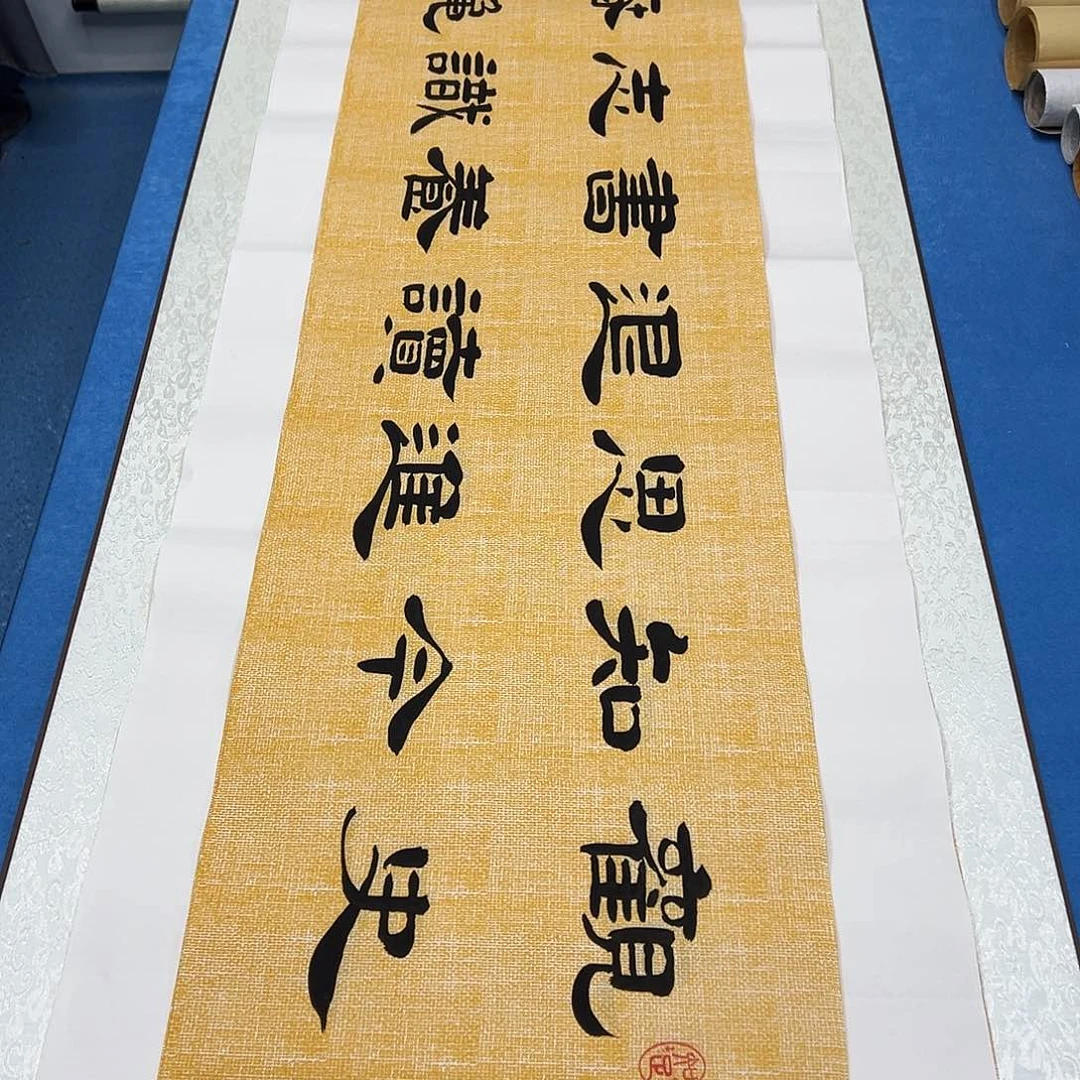 觀史
知今
思進
退讀
書養
志識